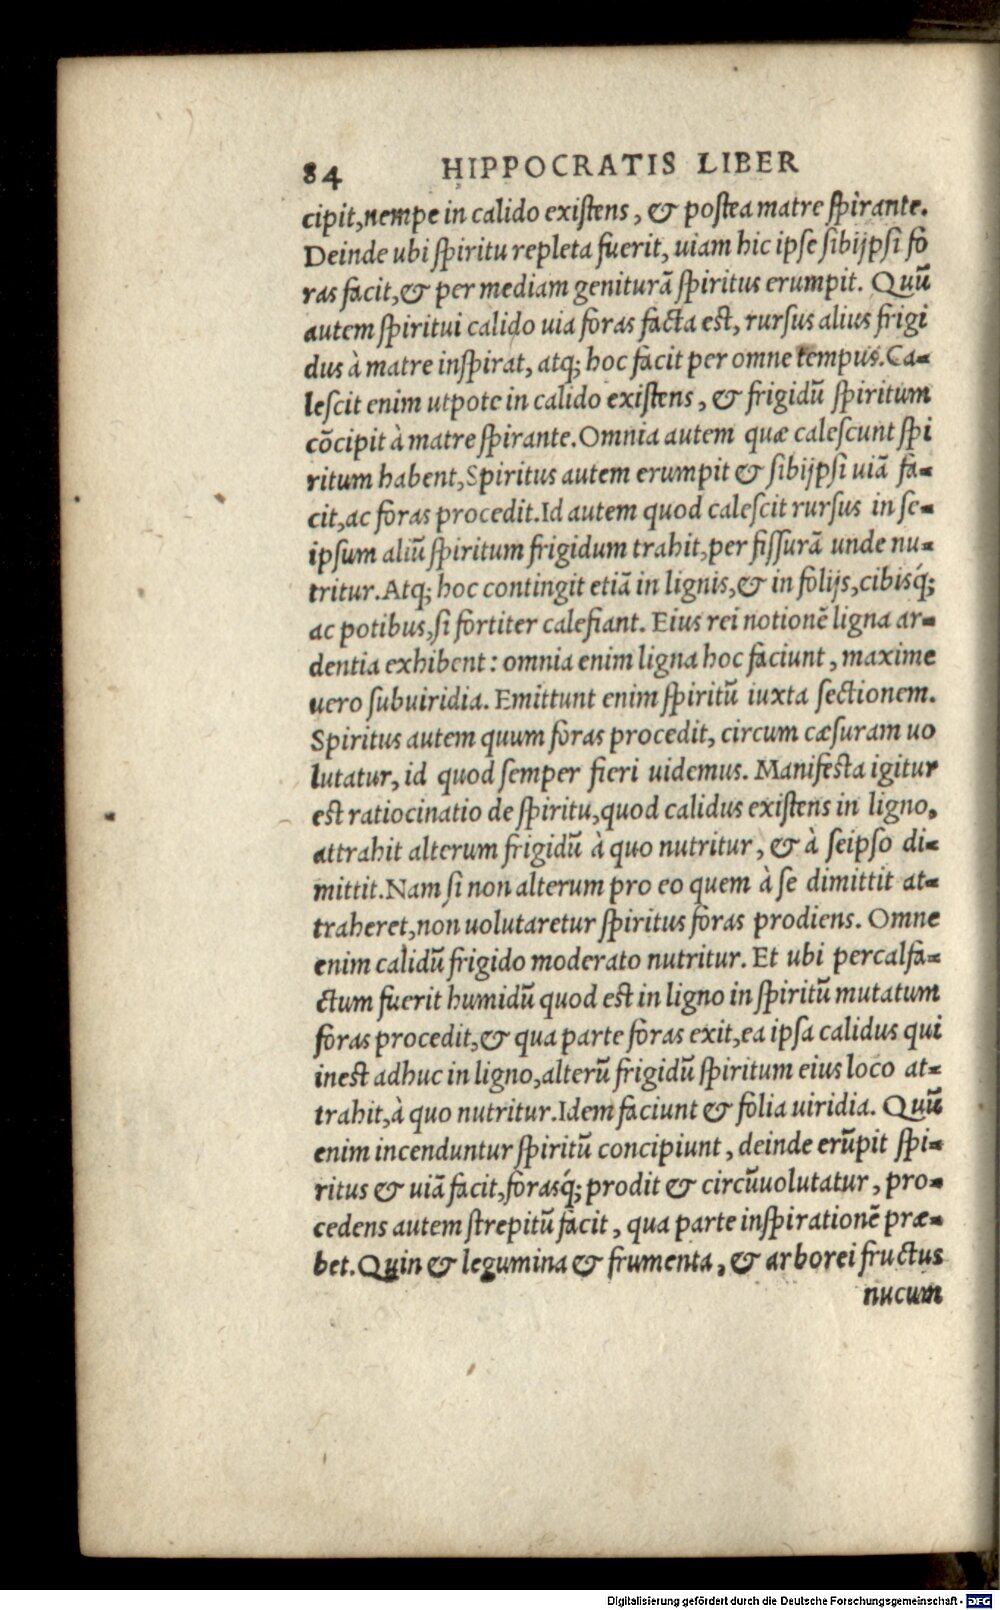 84 HIPPOCRATIS LIBER
cipit,nempe in calido existens, & postea matre spirante.
Deinde ubi spiritu repleta fuerit, uiam hic ipse sibijpsi fo
ras facit,& per mediam geniturã spiritus erumpit. Quũ
autem spiritui calido uia foras facta est, rursus alius frigi
dus à matre inspirat, atq; hoc facit per omne tempus.Ca-
lescit enim utpote in calido existens, & frigidũ spiritum
cõcipit à matre spirante.Omnia autem quæ calescunt spi
ritum habent,Spiritus autem erumpit & sibijpsi uiã fa-
cit,ac foras procedit.Id autem quod calescit rursus in se-
ipsum aliũ spiritum frigidum trahit,per fissurã unde nu-
tritur.Atq; hoc contingit etiã in lignis,& in folijs,cibisq́;
ac potibus,si fortiter calefiant. Eius rei notionẽ ligna ar-
dentia exhibent: omnia enim ligna hoc faciunt, maxime
uero subuiridia. Emittunt enim spiritũ iuxta sectionem.
Spiritus autem quum foras procedit, circum cæsuram uo
lutatur, id quod semper fieri uidemus. Manifesta igitur
est ratiocinatio de spiritu,quod calidus existens in ligno,
attrahit alterum frigidũ à quo nutritur, & à seipso di-
mittit.Nam si non alterum pro eo quem à se dimittit at-
traheret,non uolutaretur spiritus foras prodiens. Omne
enim calidũ frigido moderato nutritur. Et ubi percalfa-
ctum fuerit humidũ quod est in ligno in spiritũ mutatum
foras procedit,& qua parte foras exit,ea ipsa calidus qui
inest adhuc in ligno,alterũ frigidũ spiritum eius loco at-
trahit,à quo nutritur.Idem faciunt & folia uiridia. Quũ
enim incenduntur spiritũ concipiunt, deinde erũpit spi-
ritus & uiã facit,forasq́; prodit & circũuolutatur, pro-
cedens autem strepitũ facit, qua parte inspirationẽ præ-
bet.Quin & legumina & frumenta, & arborei fructus
nucum
Digitalisierung gefördert durch die Deutsche Forschungsgemeinschaft - DFG